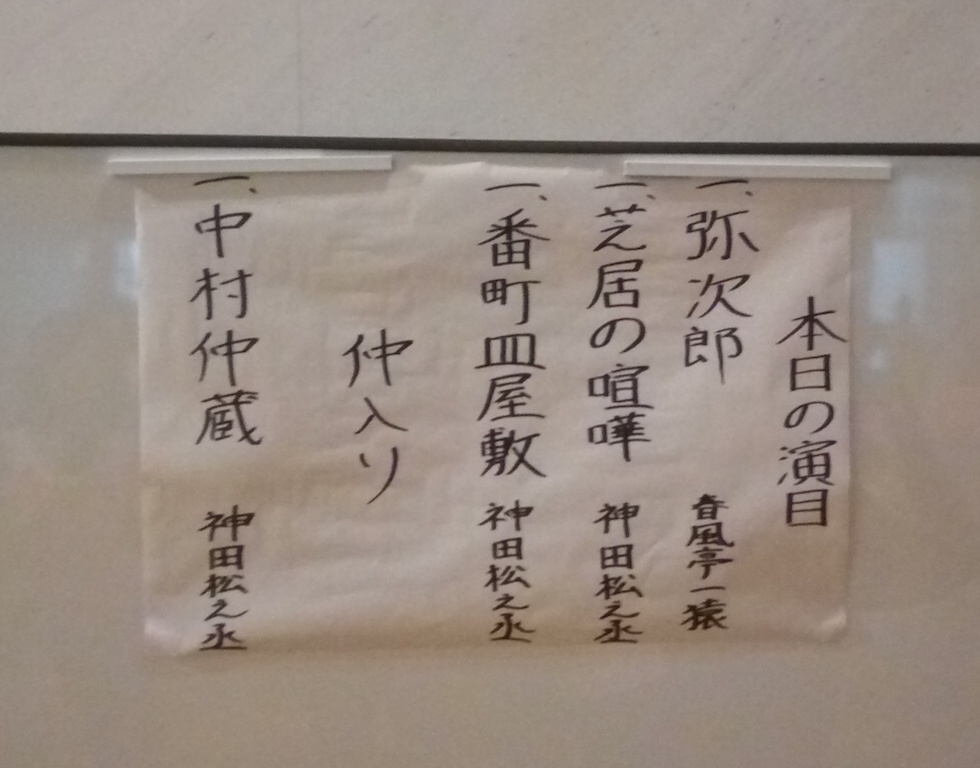 本日の演目
一、弥次郎 春風亭一猿
一、芝居の喧嘩 神田松之丞
一、番町皿屋敷 神田松之丞
仲入り
一、中村仲蔵 神田松之丞